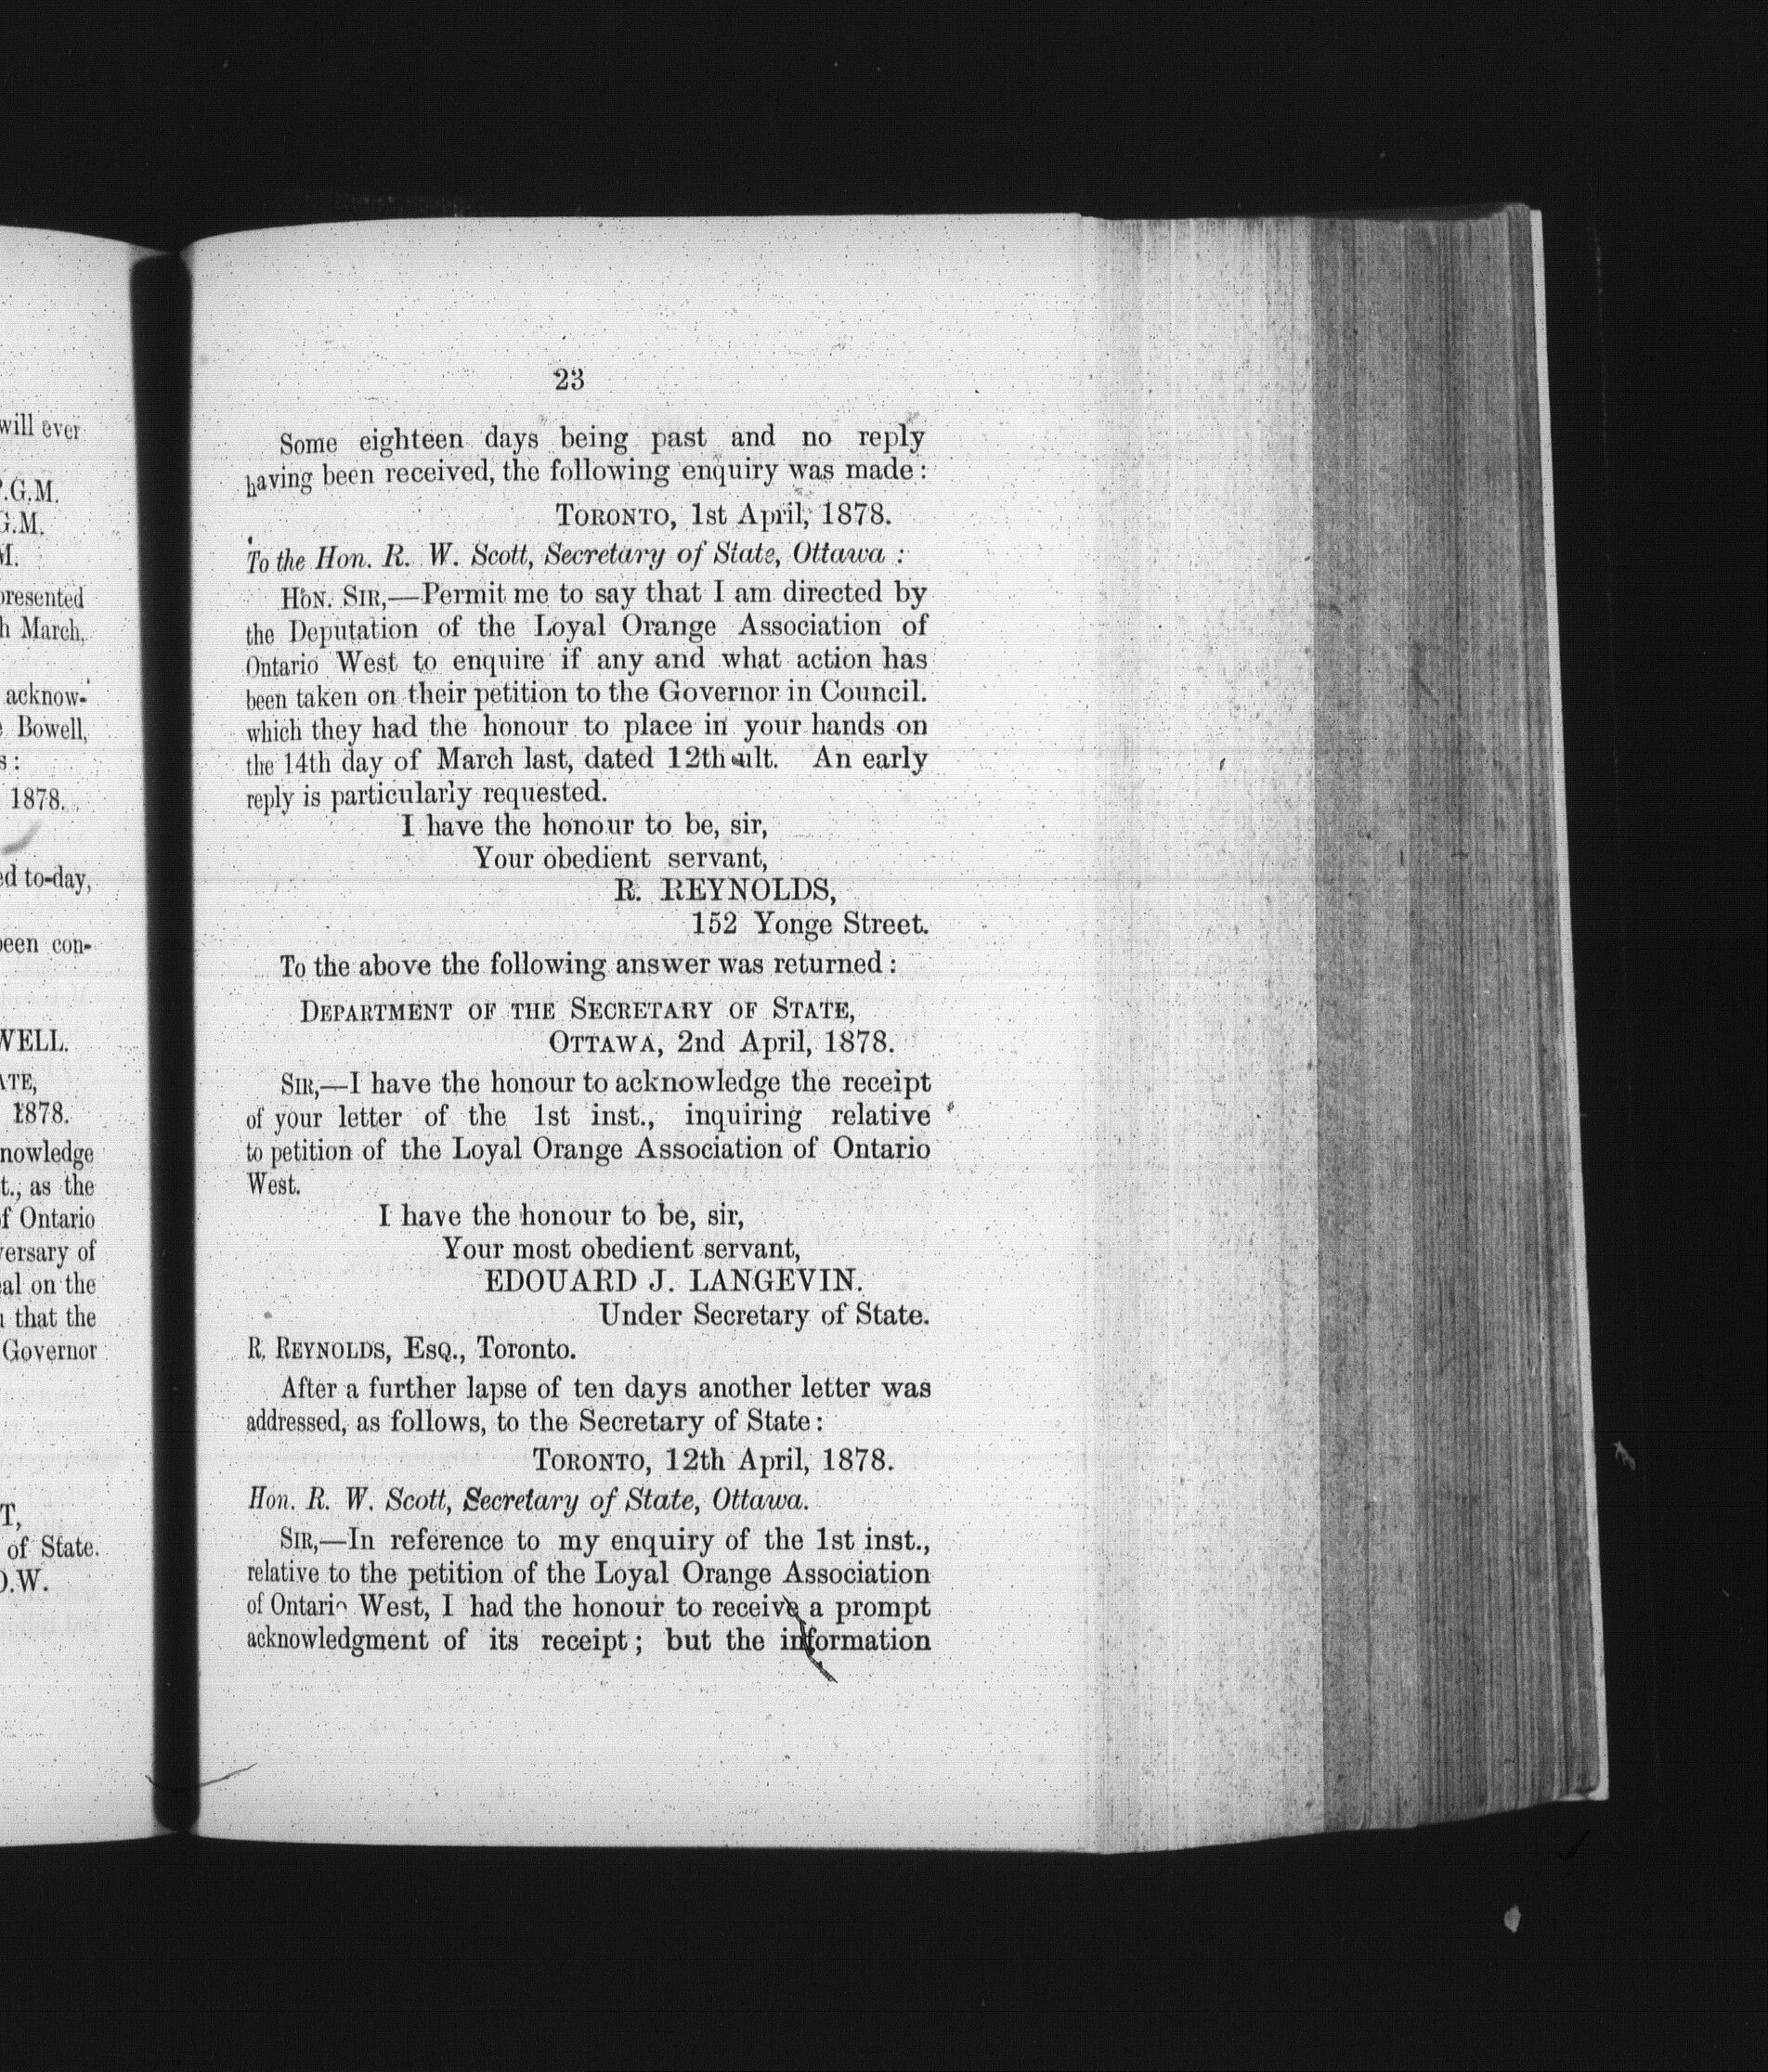 will ever
P.G.M.
G.M.
M.
presented
h March,
acknow-
Bowell,
s:
1878.
ed to-day,
been con-
WELL.
ATE,
1878.
nowledge
t., as the
of Ontario
versary of
eal on the
that the
Governor
T,
of State.
O.W.
23
Some eighteen days being past and no reply
having been received, the following enquiry was made:
TORONTO, 1st April, 1878.
To the Hon. R. W. Scott, Secretary of State, Ottawa :
HON. SIR,—Permit me to say that I am directed by
the Deputation of the Loyal Orange Association of
Ontario West to enquire if any and what action has
been taken on their petition to the Governor in Council.
which they had the honour to place in your hands on
the 14th day of March last, dated 12th ult. An early
reply is particularly requested.
I have the honour to be, sir,
Your obedient servant,
R. REYNOLDS,
152 Yonge Street.
To the above the following answer was returned:
DEPARTMENT OF THE SECRETARY OF STATE,
OTTAWA, 2nd April, 1878.
SIR,—I have the honour to acknowledge the receipt
of your letter of the 1st inst., inquiring relative
to petition of the Loyal Orange Association of Ontario
West.
I have the honour to be, sir,
Your most obedient servant,
EDOUARD J. LANGEVIN.
Under Secretary of State.
R. REYNOLDS, ESQ., Toronto.
After a further lapse of ten days another letter was
addressed, as follows, to the Secretary of State:
TORONTO, 12th April, 1878.
Hon. R. W. Scott, Secretary of State, Ottawa.
SIR,—In reference to my enquiry of the 1st inst.,
relative to the petition of the Loyal Orange Association
of Ontario West, I had the honour to receive a prompt
acknowledgment of its receipt; but the information